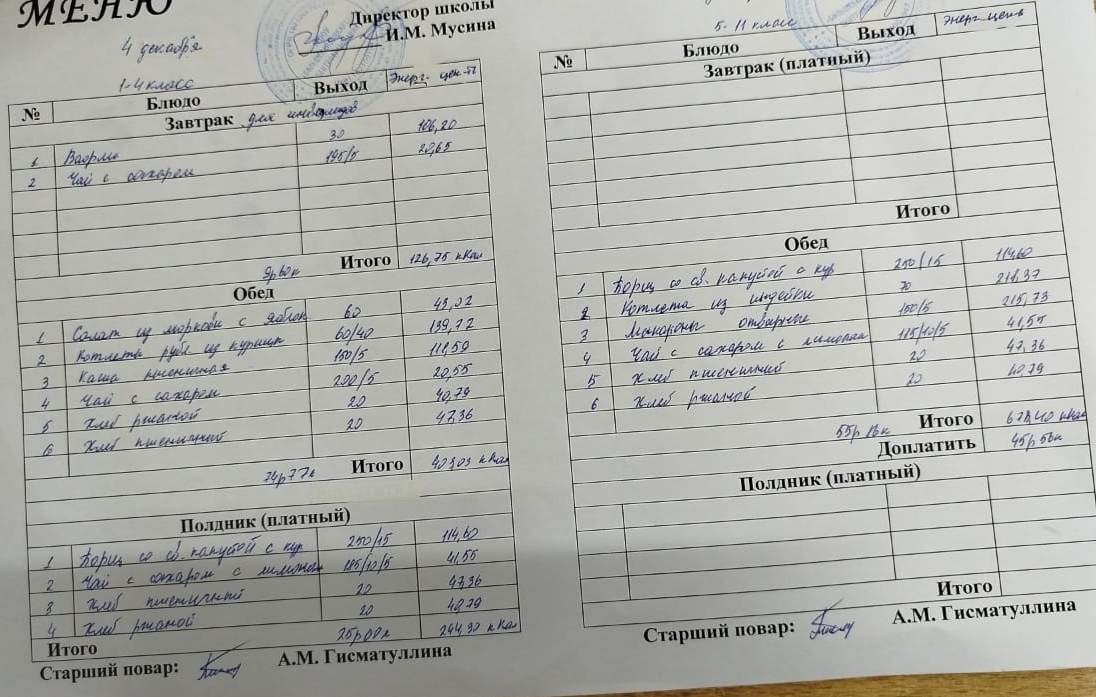 МЕНЮ
Директор школы
И.М. Мусина
4 декабря
1-4 класс
№ Блюдо Выход Энерг. цен-ть
Завтрак для инвалидов
1 30 106,20
2 Чай с сахаром 195/5 20,65
Итого 126,75 кКал
Обед
1 Салат из моркови с яблок 60 43,02
2 Котлеты рубл из курицы 60/40 139,72
3 Каша пшеничная 150/5 111,59
4 Чай с сахаром 200/5 20,55
5 Хлеб ржаной 20 40,79
6 Хлеб пшеничный 20 47,36
74р 77к Итого 403,03 кКал
Полдник (платный)
1 Борщ со св. капустой с кур 250/15 114,60
2 Чай с сахаром с лимоном 185/10/5 41,55
3 Хлеб пшеничный 20 47,36
4 Хлеб ржаной 20 40,79
Итого 25р00к 244,30 кКал
Старший повар: А.М. Гисматуллина
5-11 класс
№ Блюдо Выход Энерг. цен-ть
Завтрак (платный)
Итого
Обед
1 Борщ со св. капустой с кур 250/15 114,60
2 Котлета из индейки 70 218,37
3 Макароны отварные 150/5 215,73
4 Чай с сахаром с лимоном 185/10/5 41,55
5 Хлеб пшеничный 20 47,36
6 Хлеб ржаной 20 40,79
Итого 678,40 кКал
Доплатить 45р
Полдник (платный)
Итого
Старший повар: А.М. Гисматуллина